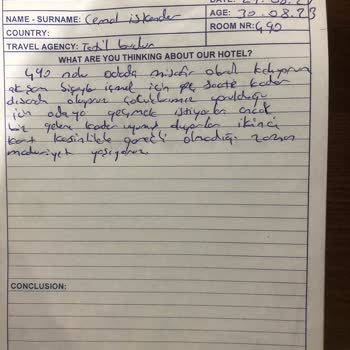 DATE:
NAME - SURNAME: Cemal iskender
AGE: 30.08.23
COUNTRY:
ROOM NR: 490
TRAVEL AGENCY: Tatil
WHAT ARE YOU THINKING ABOUT OUR HOTEL?
490 nolu odada misafir olarak kalıyorum
akşam için geç saate kadar
dışarda oluyoruz çocuklarımız yorulduğu
için odaya geçmek istiyorlar ancak
biz gelene kadar ikinci
kart kesinlikle gerekli olmadığı zaman
mağduriyet yaşıyoruz
CONCLUSION: